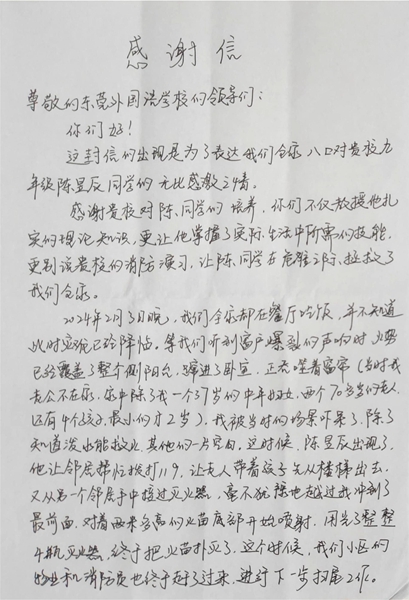 感谢信
尊敬的东莞外国语学校的领导们：
你们好！
这封信的出现是为了表达我们全家八口对贵校九
年级陈昱辰同学的无比感激之情。
感谢贵校对陈同学的培养，你们不仅教授他扎
实的理论知识，更让他掌握了实际生活中所需的技能，
更别说贵校的消防演习，让陈同学在危难之际，拯救了
我们全家。
2024年2月3日晚，我们全家都在餐厅吃饭，并不知道
此时灾祸已经降临。等我们听到窗户爆裂的声响时，火势
已经覆盖了整个侧阳台，弹进了卧室，正吞噬着窗帘（当时我
老公不在家，家中除了我一个37岁的中年妇女，两个70多岁的老人，
还有4个孩子，最小的才2岁）。我被当时的场景吓呆了，除了
知道泼水能救火，其他的一片空白，这时候，陈昱辰出现了，
他让邻居帮忙拨打119，让老人带着孩子先从楼梯出去，
又从另一个邻居手中接过灭火器，毫不犹豫地越过我冲到了
最前面，对着两米多高的火苗底部开始喷射，用光了整整
4瓶灭火器，终于把火苗扑灭了，这个时候，我们小区的
物业和消防员也终于赶了过来，进行下一步扫尾工作。